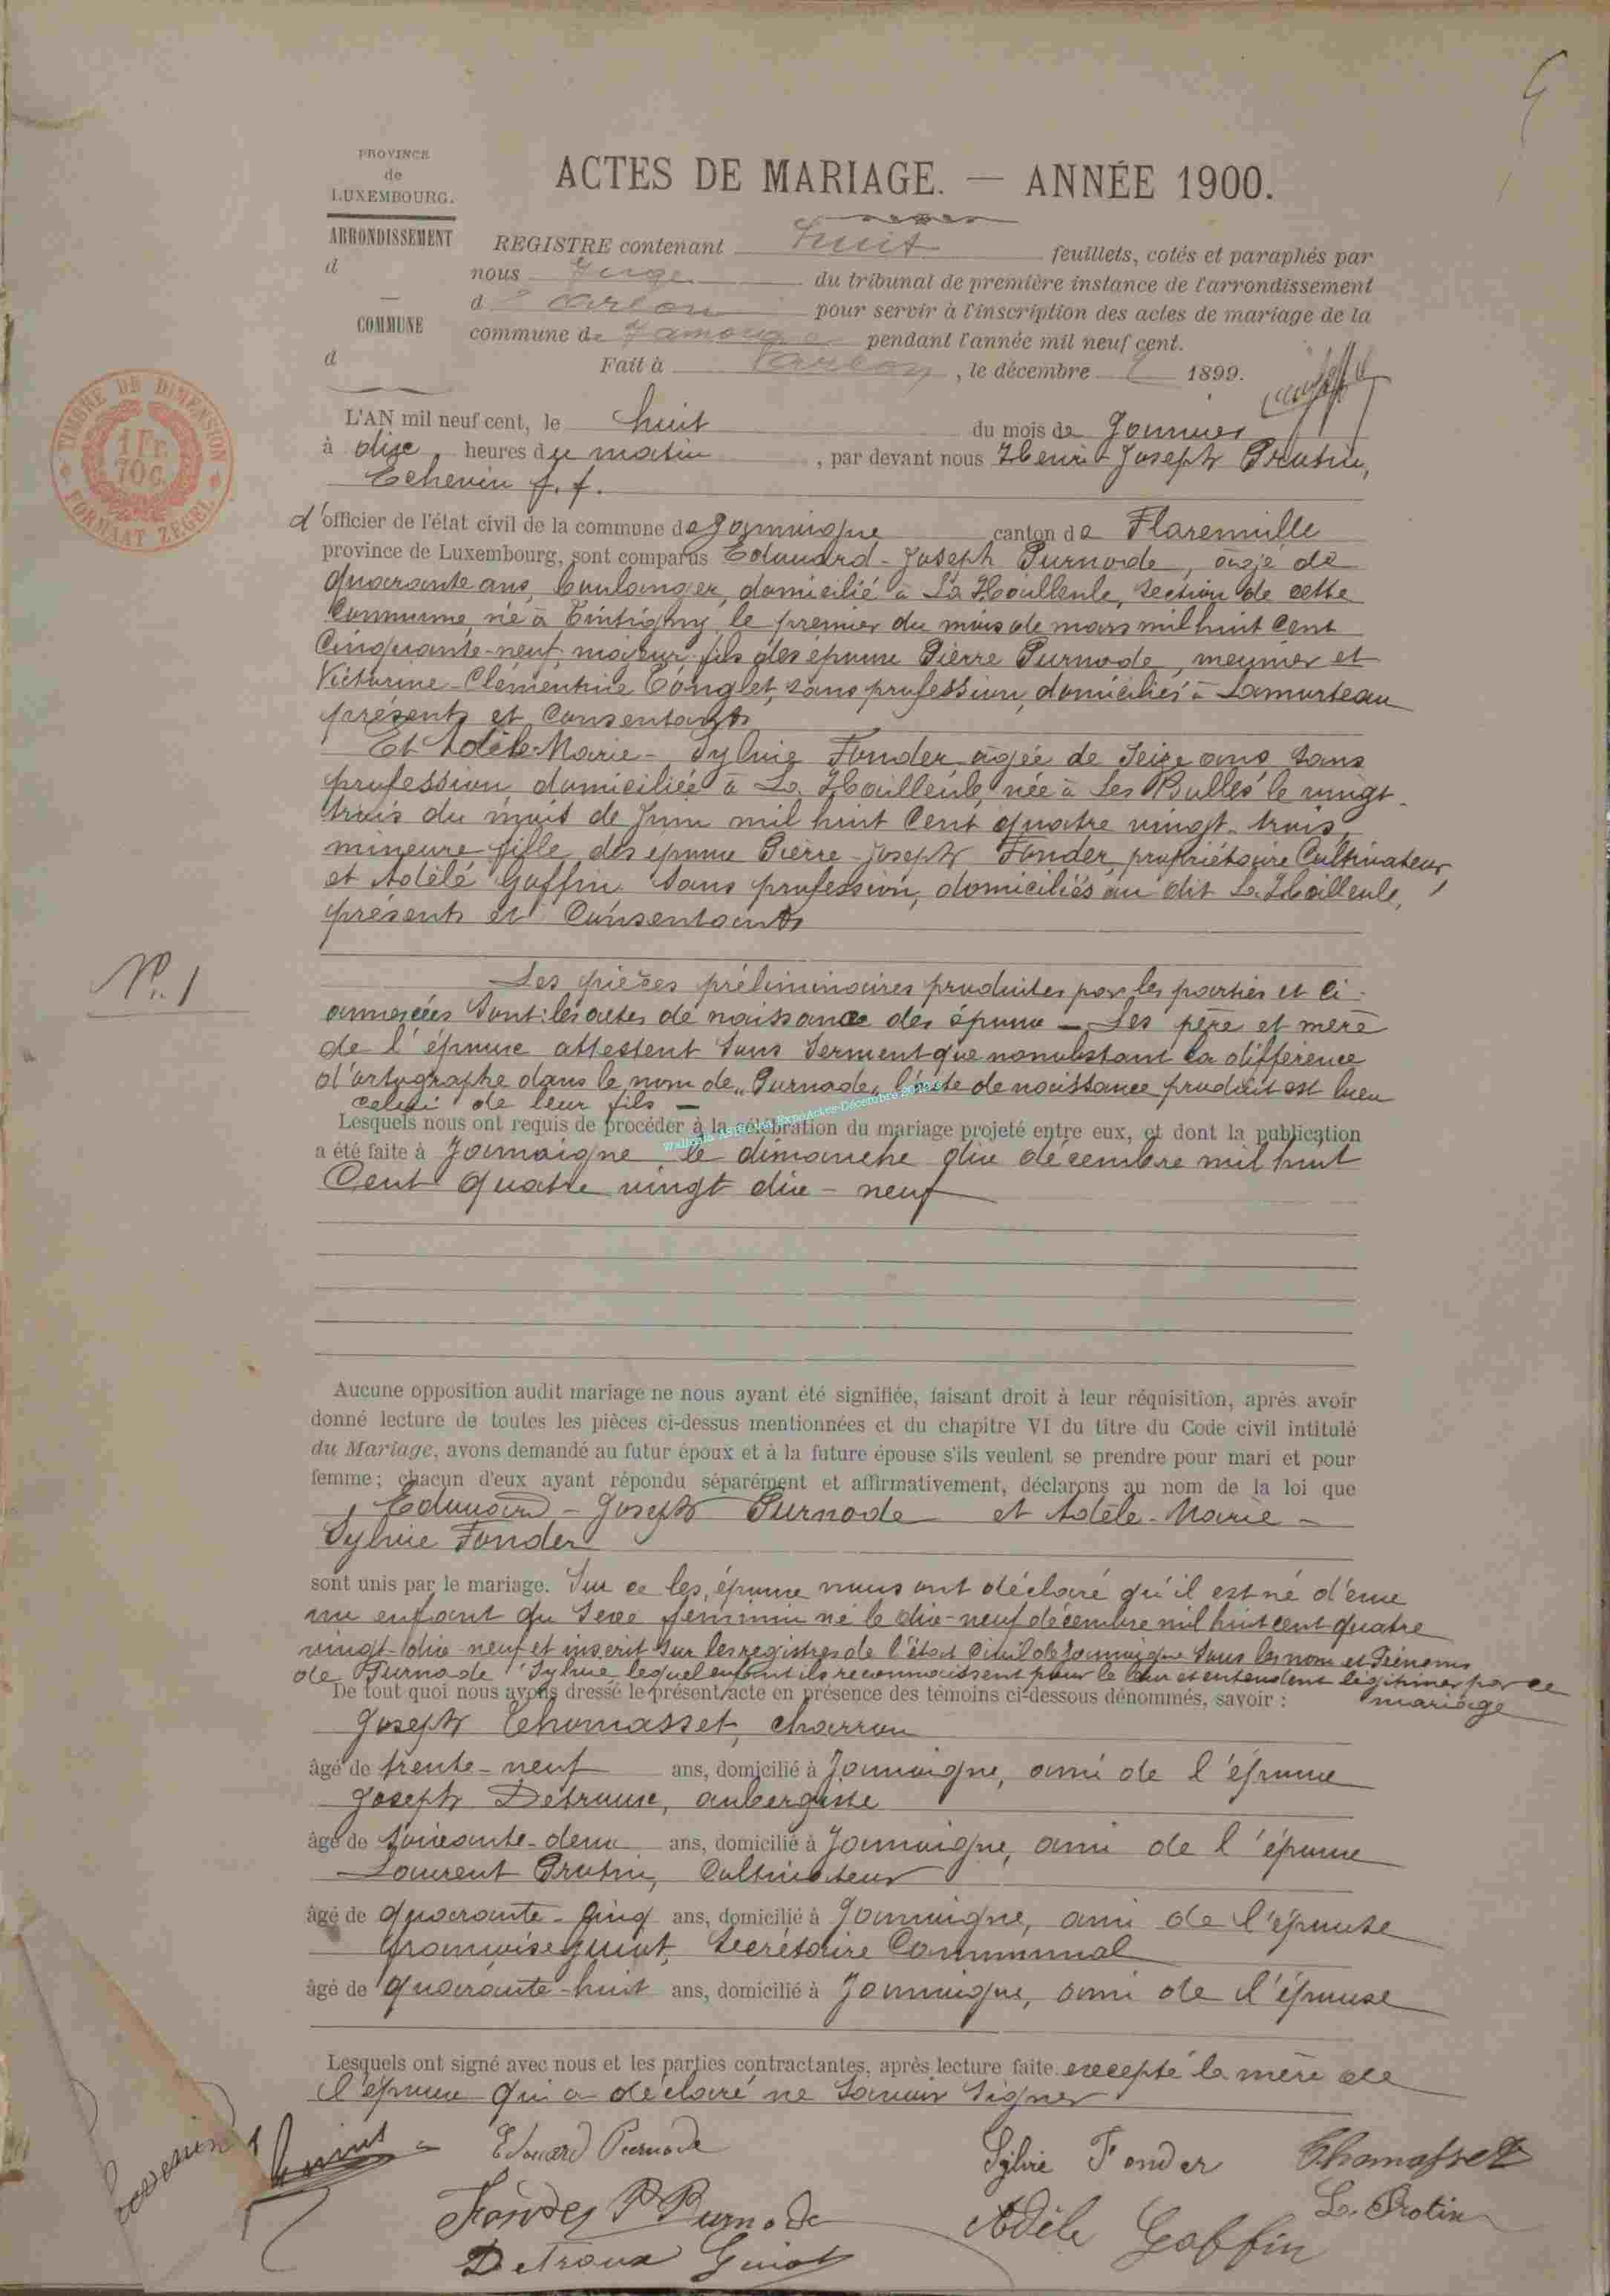 PROVINCE
de
LUXEMBOURG.
ARRONDISSEMENT
d
COMMUNE
d
ACTES DE MARIAGE. — ANNÉE 1900.
REGISTRE contenant huit feuillets, cotés et paraphés par
nous Juge du tribunal de première instance de l'arrondissement
d'Arlon pour servir à l'inscription des actes de mariage de la
commune de Jamoigne pendant l'année mil neuf cent.
Fait à Arlon, le décembre 1899.
TIMBRE DE DIMENSION
1 Fr.
70 c.
FORMAAT ZEGEL
L'AN mil neuf cent, le huit du mois de Janvier
à dix heures du matin, par devant nous Henri-Joseph Protin,
Echevin f.f.
d'officier de l'état civil de la commune de Jamoigne canton de Florenville
province de Luxembourg, sont comparus Edouard-Joseph Purnode, âgé de
quarante ans, boulanger, domicilié à La Hailleule, section de cette
Commune, né à Tintigny, le premier du mois de mars mil huit Cent
Cinquante-neuf, majeur, fils des époux Pierre Purnode, meunier et
Victorine-Clémentine Conglet, sans profession, domiciliés à Lamorteau
présents et Consentants
Et Adèle-Marie-Sylvie Fonder, âgée de seize ans, sans
profession, domiciliée à La Hailleule, née à Les Bulles le vingt-
trois du mois de Juin mil huit Cent quatre vingt-trois,
mineure, fille des époux Pierre-Joseph Fonder, propriétaire Cultivateur,
et Adèle Goffin sans profession, domiciliés au dit La Hailleule,
présents et Consentants
N° 1
Les pièces préliminaires produites par les parties et ci-
annexées sont: les actes de naissance des époux — Les père et mère
de l'époux attestent sous serment que nonobstant la différence
d'ortographe dans le nom de "Purnode", l'acte de naissance produit est bien
celui de leur fils —
Lesquels nous ont requis de procéder à la célébration du mariage projeté entre eux, et dont la publication
a été faite à Jamoigne, le dimanche dix décembre mil huit
Cent quatre vingt dix-neuf
Aucune opposition audit mariage ne nous ayant été signifiée, faisant droit à leur réquisition, après avoir
donné lecture de toutes les pièces ci-dessus mentionnées et du chapitre VI du titre du Code civil intitulé
du Mariage, avons demandé au futur époux et à la future épouse s'ils veulent se prendre pour mari et pour
femme; chacun d'eux ayant répondu séparément et affirmativement, déclarons au nom de la loi que
Edouard-Joseph Purnode et Adèle-Marie-
Sylvie Fonder
sont unis par le mariage. Sur ce les époux nous ont déclaré qu'il est né d'eux
un enfant du sexe féminin né le dix-neuf décembre mil huit cent quatre
vingt-dix-neuf et inscrit sur les registres de l'état Civil de Jamoigne sous les nom et Prénoms
de Purnode Sylvie lequel enfant ils reconnaissent pour le leur et entendent légitimer par ce
mariage
De tout quoi nous avons dressé le présent acte en présence des témoins ci-dessous dénommés, savoir :
Joseph Thomasset, charron
âgé de trente-neuf ans, domicilié à Jamoigne, ami de l'époux
Joseph Detroux, aubergiste
âgé de soixante-deux ans, domicilié à Jamoigne, ami de l'époux
Laurent Protin, Cultivateur
âgé de quarante-Cinq ans, domicilié à Jamoigne, ami de l'épouse
François Guiot, Secrétaire Communal
âgé de quarante-huit ans, domicilié à Jamoigne, ami de l'épouse
Lesquels ont signé avec nous et les parties contractantes, après lecture faite excepté la mère de
l'époux qui a déclaré ne savoir signer
Edouard Purnode Sylvie Fonder Thomasset
Fonder P Purnode Adèle Goffin L. Protin
Detroux Guiot